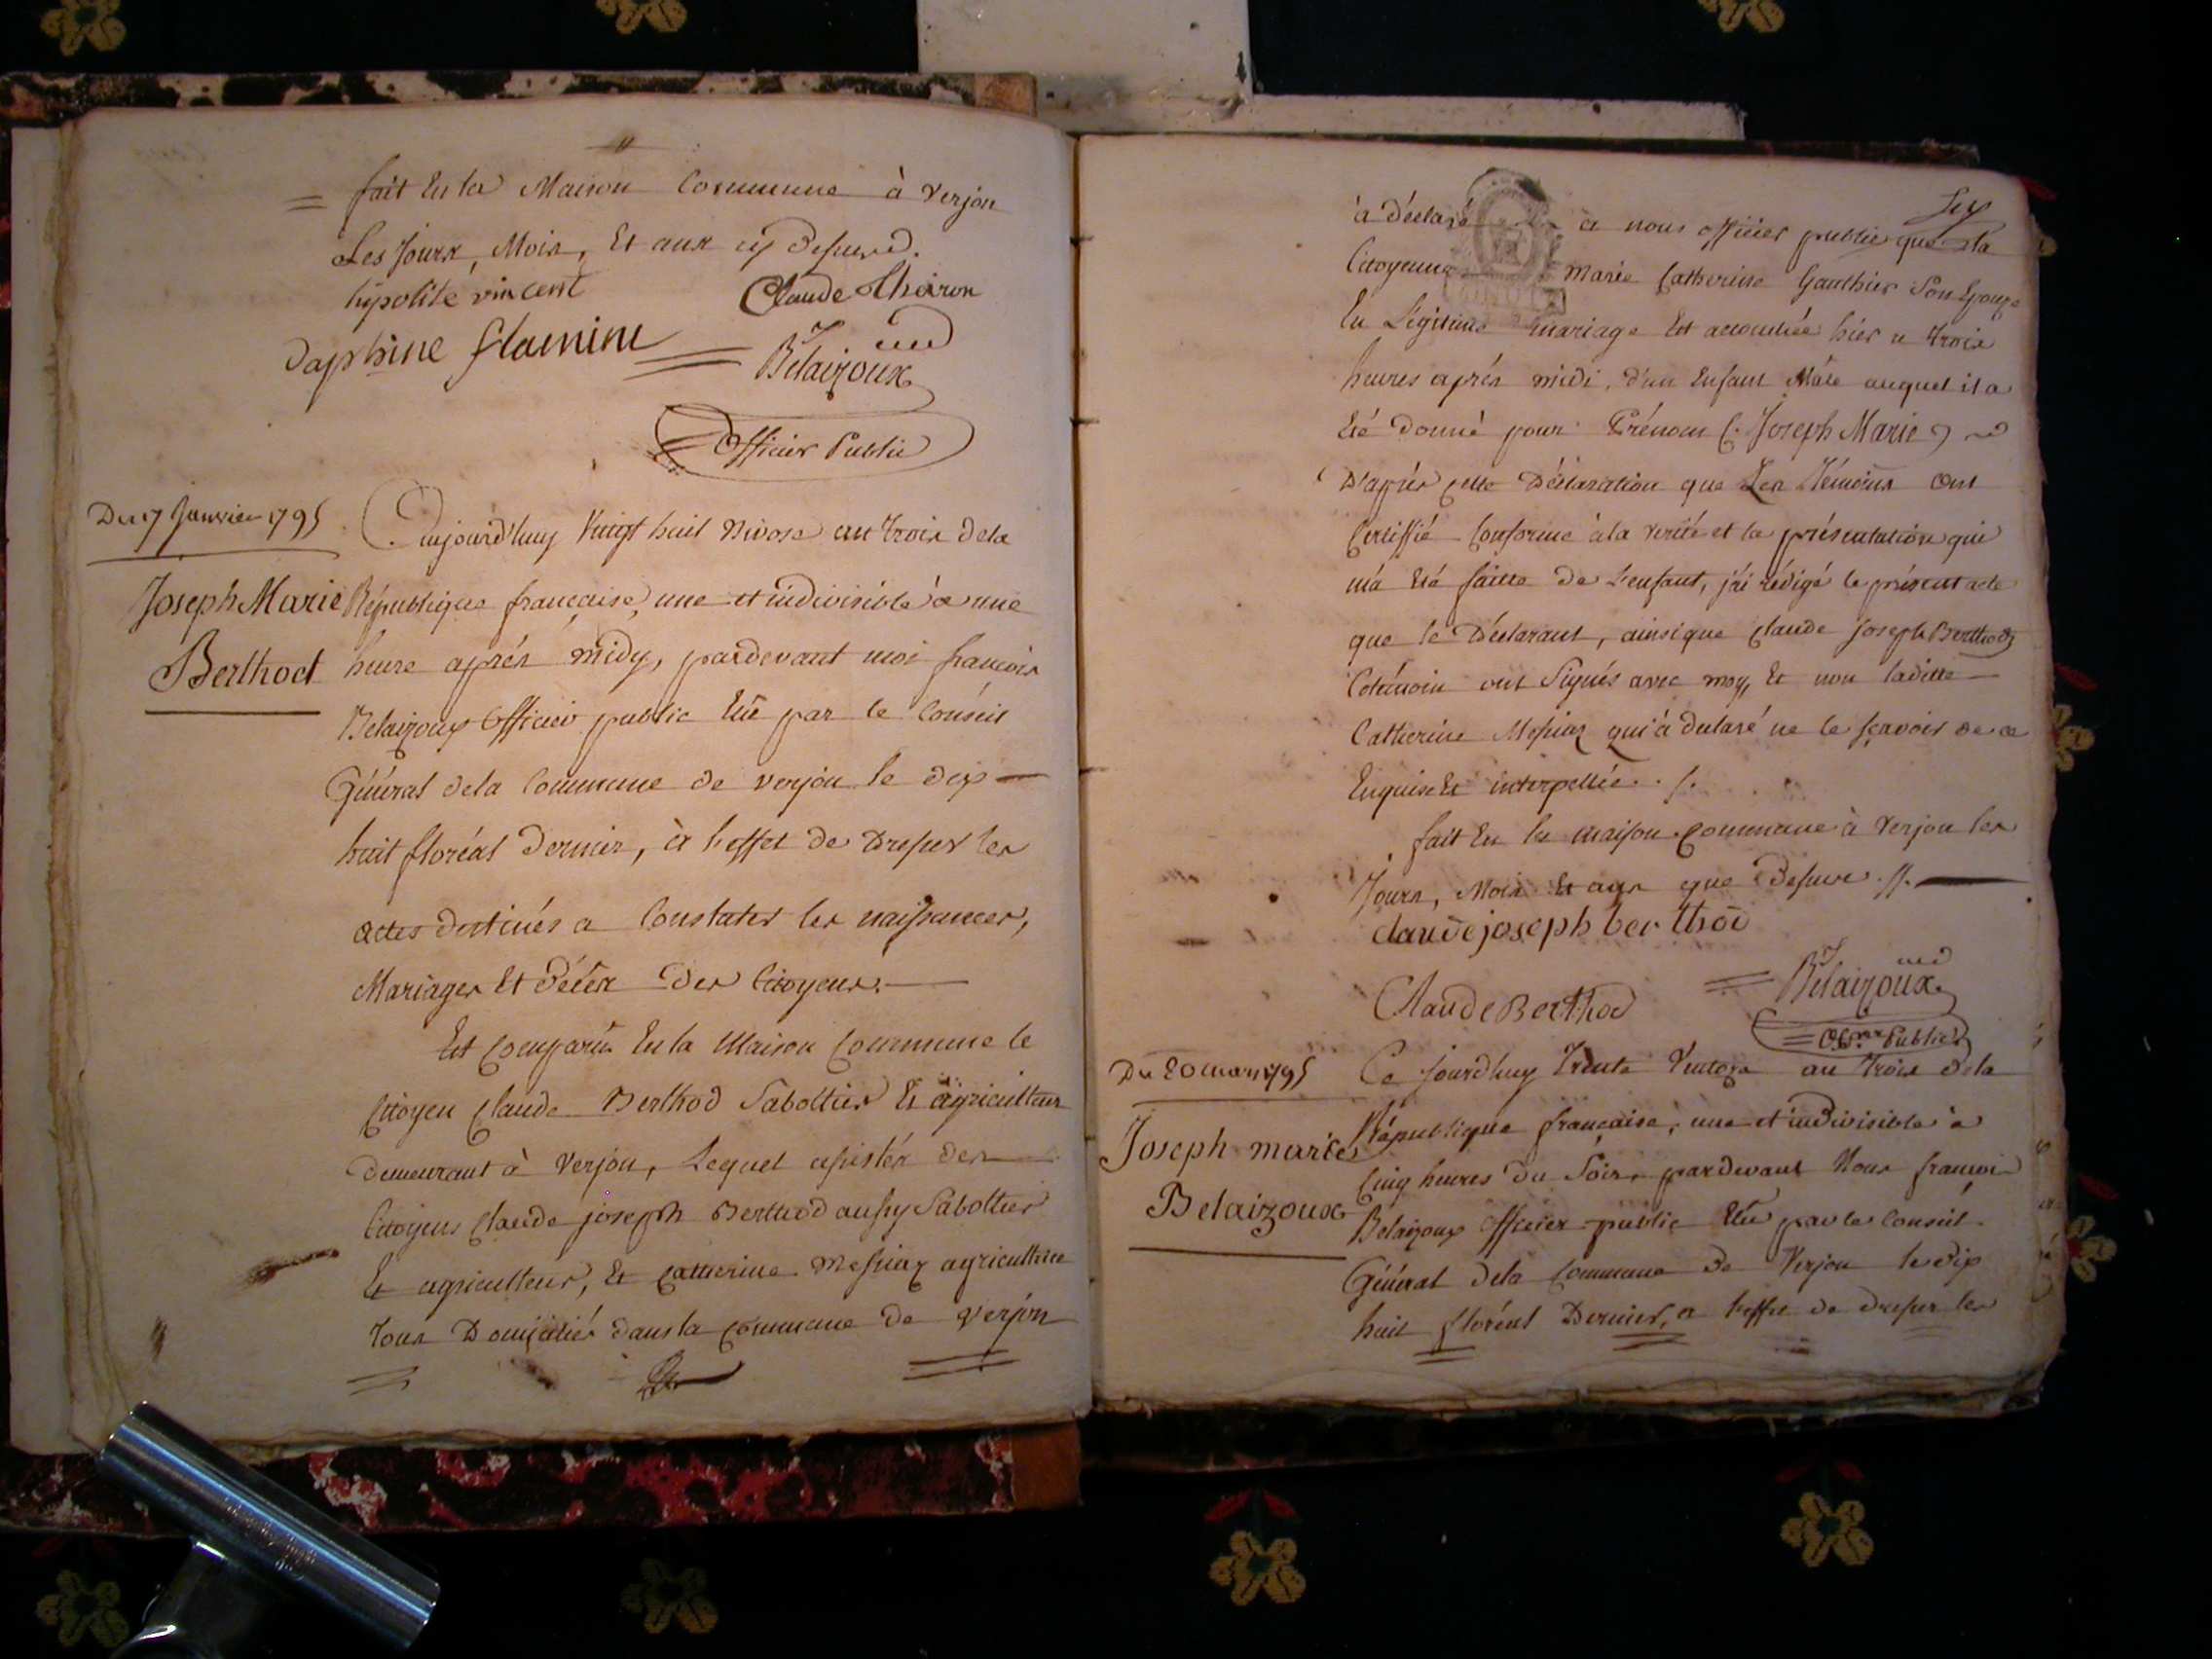 = fait En la Maison Commune à Verjon
Les Jours, Mois, Et ans cy Dessus.
hipolite vincent Claude Thoiron
Daphine flamini
Belaizoux
Officier Public
Du 17 Janvier 1795
Joseph Marie
Berthod
Aujourd'huy Vingt huit Nivose an trois dela
République française, une et indivisible à une
heure après midy, pardevant moi francois
Belaizoux Officier public Elu par le Conseil
Général dela Commune de verjon le dix —
huit floréal dernier, à l'effet de Dresser les
actes destinés a Constater les naissances,
Mariages Et décès Des Citoyens. —
Est comparu En la Maison Commune le
Citoyen Claude Berthod Sabottier Et agriculteur
demeurant à Verjon, Lequel assisté des
Citoyens Claude joseph Berthod aussy Sabottier
Et agriculteur, Et Catherine Messiaz agricultrice
tous Domiciliés dans la Commune de Verjon
Six
a Déclaré à nous officier public que la
Citoyenne Marie Catherine Gauthier Son Epouze
En Légitime mariage Est accouchée hier a trois
heures après midi, d'un Enfant Mâle auquel il a
Eté donné pour Prénom (. Joseph Marie )
D'après cette Déclaration que Les Témoins ont
Certiffié Conforme à la vérité et la présentation qui
m'a Eté faitte de L'enfant, j'ai rédigé le présent acte
que le Déclarant, ainsi que Claude Joseph Berthod
Cotémoin ont Signés avec moy, Et non laditte —
Catherine Messiaz qui a déclaré ne le sçavoir de ce
Enquise Et interpellée. /.
fait En la maison commune à Verjon les
Jours, Mois Et ans que Dessus. //. —
claude joseph berthod
Claude Berthod
Belaizoux
Off.er Public
Du 20 mars 1795
Joseph marie
Belaizoux
Ce jourd'huy Trente Ventose an trois dela
République française, une et indivisible à
Cinq heures du Soir, pardevant Nous francois
Belaizoux officier public Elu par le Conseil
Général dela Commune de Verjon le dix
huit floréal Dernier, a l'effet de dresser les